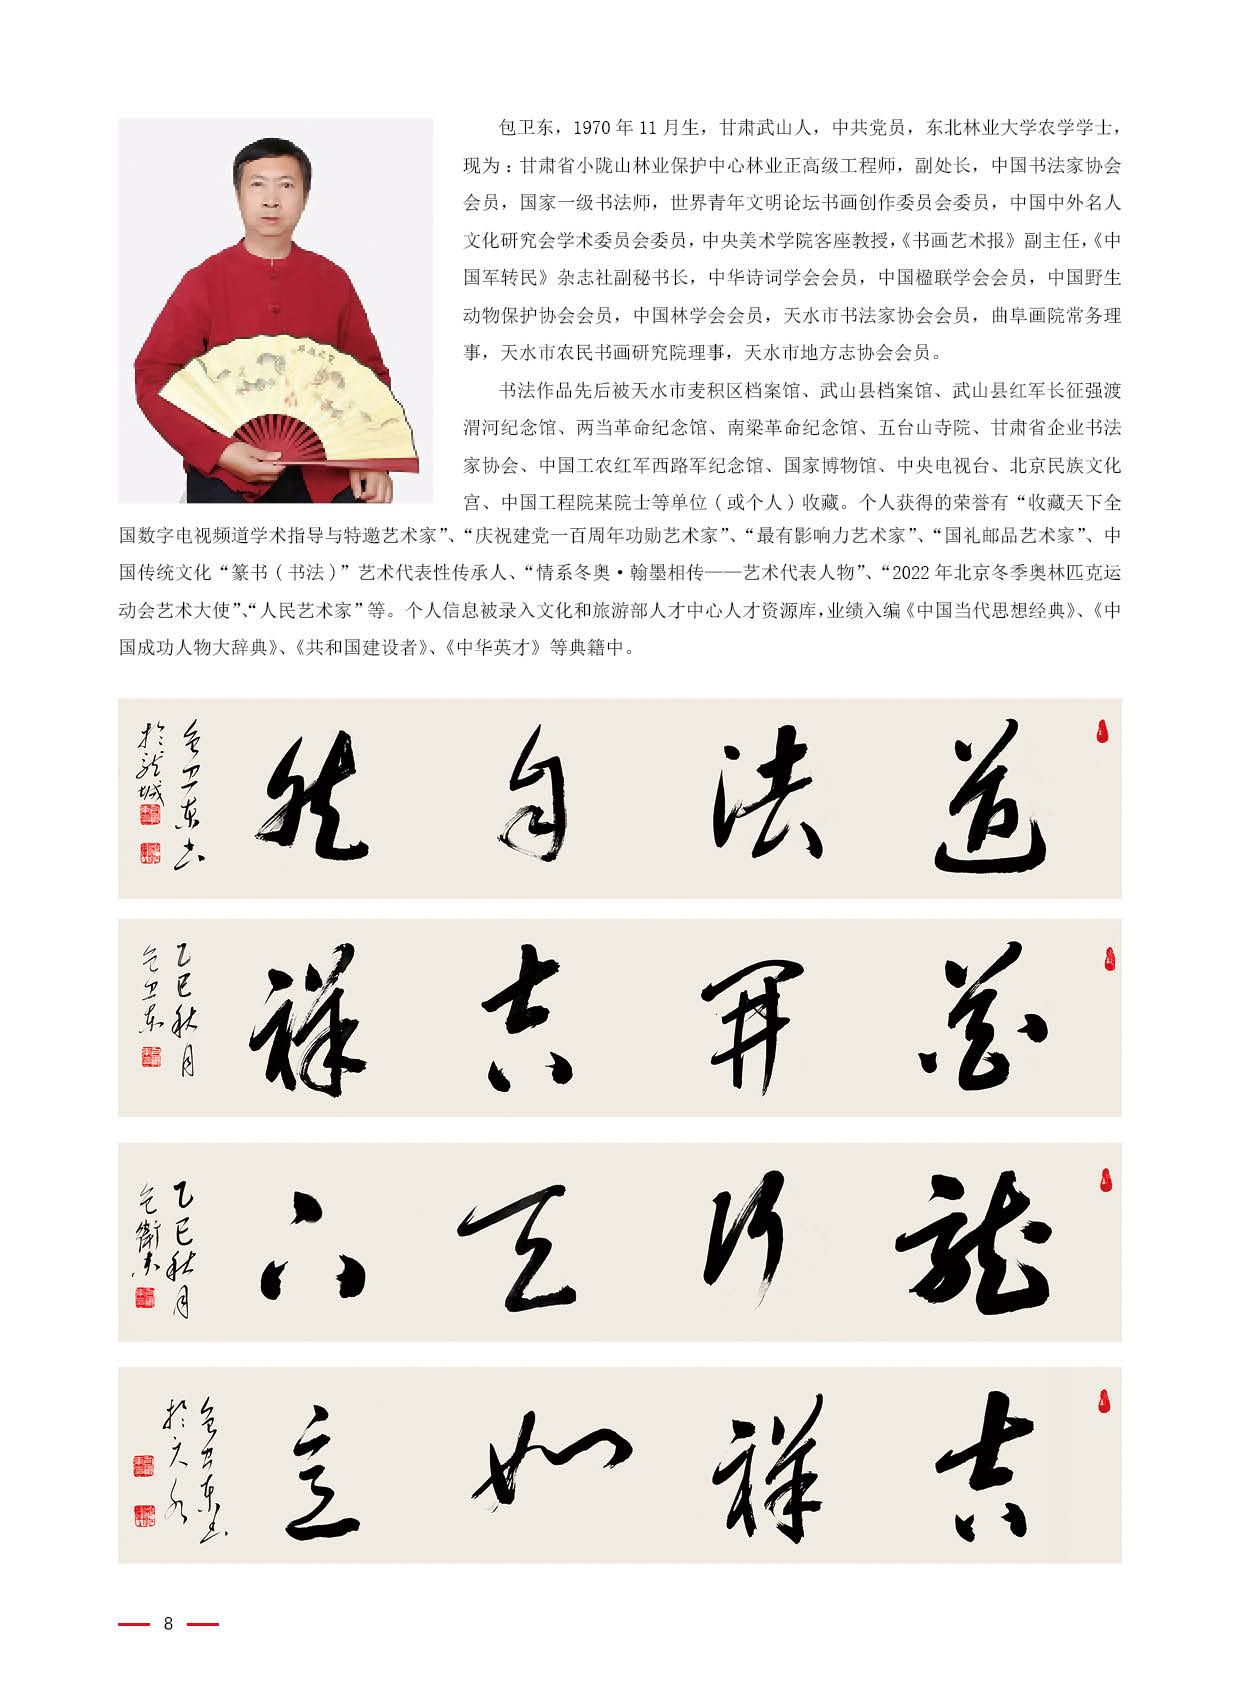 包卫东，1970 年 11 月生，甘肃武山人，中共党员，东北林业大学农学学士，
现为：甘肃省小陇山林业保护中心林业正高级工程师，副处长，中国书法家协会
会员，国家一级书法师，世界青年文明论坛书画创作委员会委员，中国中外名人
文化研究会学术委员会委员，中央美术学院客座教授，《书画艺术报》副主任，《中
国军转民》杂志社副秘书长，中华诗词学会会员，中国楹联学会会员，中国野生
动物保护协会会员，中国林学会会员，天水市书法家协会会员，曲阜画院常务理
事，天水市农民书画研究院理事，天水市地方志协会会员。
书法作品先后被天水市麦积区档案馆、武山县档案馆、武山县红军长征强渡
渭河纪念馆、两当革命纪念馆、南梁革命纪念馆、五台山寺院、甘肃省企业书法
家协会、中国工农红军西路军纪念馆、国家博物馆、中央电视台、北京民族文化
宫、中国工程院某院士等单位（或个人）收藏。个人获得的荣誉有“收藏天下全
国数字电视频道学术指导与特邀艺术家”、“庆祝建党一百周年功勋艺术家”、“最有影响力艺术家”、“国礼邮品艺术家”、中
国传统文化“篆书（书法）”艺术代表性传承人、“情系冬奥·翰墨相传——艺术代表人物”、“2022 年北京冬季奥林匹克运
动会艺术大使”、“人民艺术家”等。个人信息被录入文化和旅游部人才中心人才资源库，业绩入编《中国当代思想经典》、《中
国成功人物大辞典》、《共和国建设者》、《中华英才》等典籍中。
道法自然
包卫东书
於龙城
花開吉祥
乙巳秋月
包卫东
龍行天下
乙巳秋月
包衛东
吉祥如意
包卫东书
於天水
8